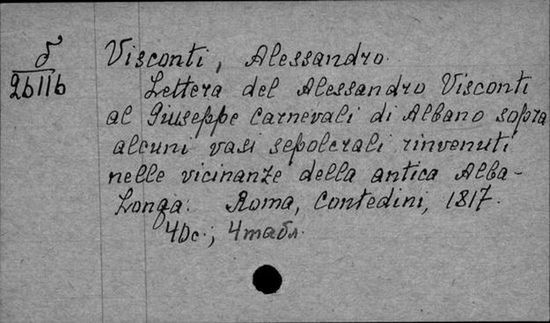 δ
26116
Visconti, Alessandro.
Lettera del Alessandro Visconti
al Giuseppe Carnevali di Albano sopra
alcuni vasi sepolcrali rinvenuti
nelle vicinanze della antica Alba-
Longa. Roma, Contedini, 1817.
40с.; 4табл.